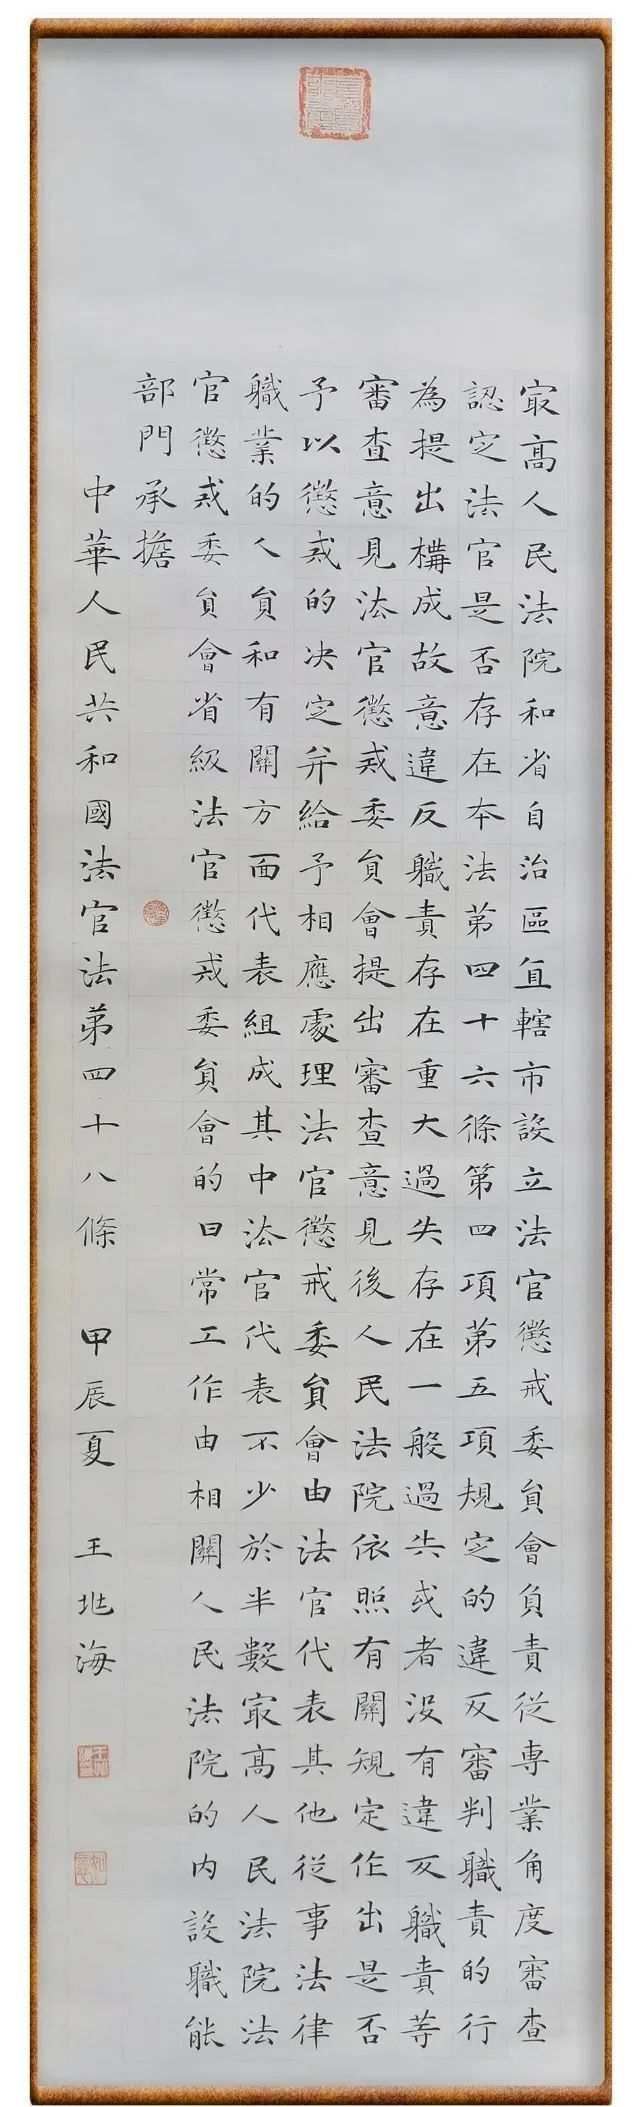 寂高人民法院和省自治區直轄市設立法官懲戒委員會負責從專業角度審查
認定法官是否存在本法第四十六條第四項第五項規定的違反審判職責的行
為提出構成故意違反職責存在重大過失存在一般過失或者沒有違反職責等
審查意見法官懲戒委員會提出審查意見後人民法院依照有關規定作出是否
予以懲戒的决定并給予相應處理法官懲戒委員會由法官代表其他從事法律
職業的人員和有關方面代表組成其中法官代表不少於半數寂高人民法院法
官懲戒委員會省級法官懲戒委員會的日常工作由相關人民法院的内設職能
部門承擔
中華人民共和國法官法第四十八條 甲辰夏 王兆海